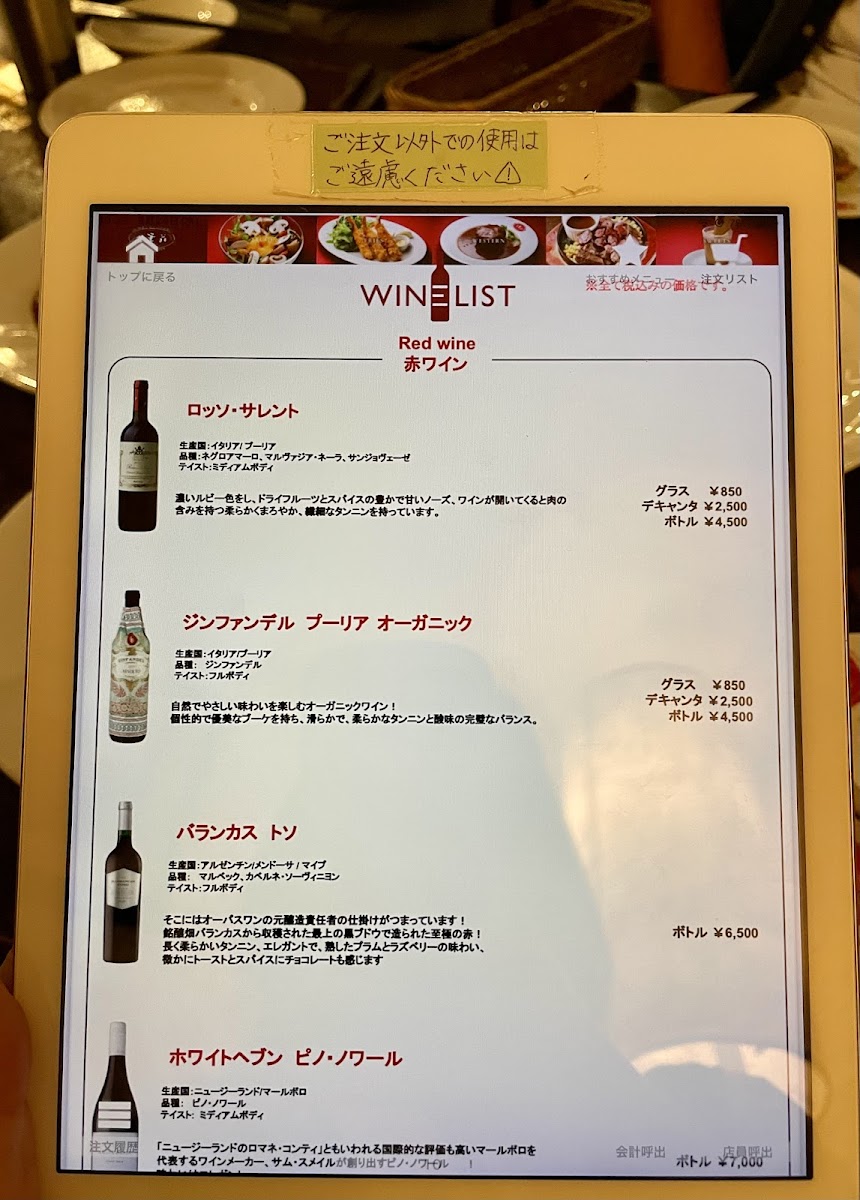 ご注文以外での使用は
ご遠慮ください⚠
トップに戻る
おすすめメニュー
注文リスト
※全て税込みの価格です。
WINE LIST
Red wine
赤ワイン
ロッソ・サレント
生産国：イタリア/ プーリア
品種：ネグロアマーロ、マルヴァジア・ネーラ、サンジョヴェーゼ
テイスト：ミディアムボディ
濃いルビー色をし、ドライフルーツとスパイスの豊かで甘いノーズ、ワインが開いてくると肉の
含みを持つ柔らかくまろやか、繊細なタンニンを持っています。
グラス ￥850
デキャンタ ￥2,500
ボトル ￥4,500
ジンファンデル プーリア オーガニック
生産国：イタリア/プーリア
品種： ジンファンデル
テイスト：フルボディ
自然でやさしい味わいを楽しむオーガニックワイン！
個性的で優美なブーケを持ち、滑らかで、柔らかなタンニンと酸味の完璧なバランス。
グラス ￥850
デキャンタ ￥2,500
ボトル ￥4,500
バランカス トソ
生産国：アルゼンチン/メンドーサ / マイプ
品種： マルベック、カベルネ・ソーヴィニヨン
テイスト：フルボディ
そこにはオーパスワンの元醸造責任者の仕掛けがつまっています！
銘醸畑バランカスから収穫された最上の黒ブドウで造られた至極の赤！
長く柔らかいタンニン、エレガントで、熟したプラムとラズベリーの味わい、
微かにトーストとスパイスにチョコレートも感じます
ボトル ￥6,500
ホワイトヘブン ピノ・ノワール
生産国：ニュージーランド/マールボロ
品種： ピノ・ノワール
テイスト： ミディアムボディ
「ニュージーランドのロマネ・コンティ」ともいわれる国際的な評価も高いマールボロを
代表するワインメーカー、サム・スメイルが創り出すピノ・ノワール！
ボトル ￥7,000
注文履歴
会計呼出
店員呼出